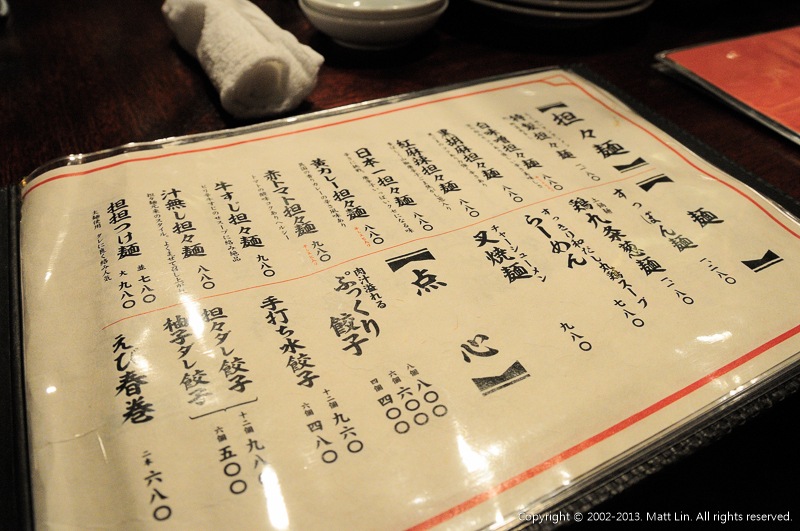 担々麺
特製担々麺
一、二〇〇
白味噌担々麺
八八〇
黒胡麻担々麺
八八〇
紅麻辣担々麺
八八〇
日本一担々麺
八八〇
黄カレー担々麺
八八〇
赤トマト担々麺
九八〇
牛すじ担々麺
九八〇
汁無し担々麺
八八〇
担担つけ麺
並 七八〇
大 九八〇
麺
すっぽん麺
一、二八〇
鶏九条葱麺
一、二八〇
らーめん
七八〇
チャーシューメン
叉焼麺
九八〇
点心
肉汁溢れる
ぷっくり餃子
八個 八〇〇
六個 六〇〇
四個 四〇〇
手打ち水餃子
十二個 九六〇
六個 四八〇
担々ダレ餃子
柚子ダレ餃子
十二個 九八〇
六個 五〇〇
えび春巻
二本 六八〇
Copyright © 2002-2013. Matt Lin. All rights reserved.